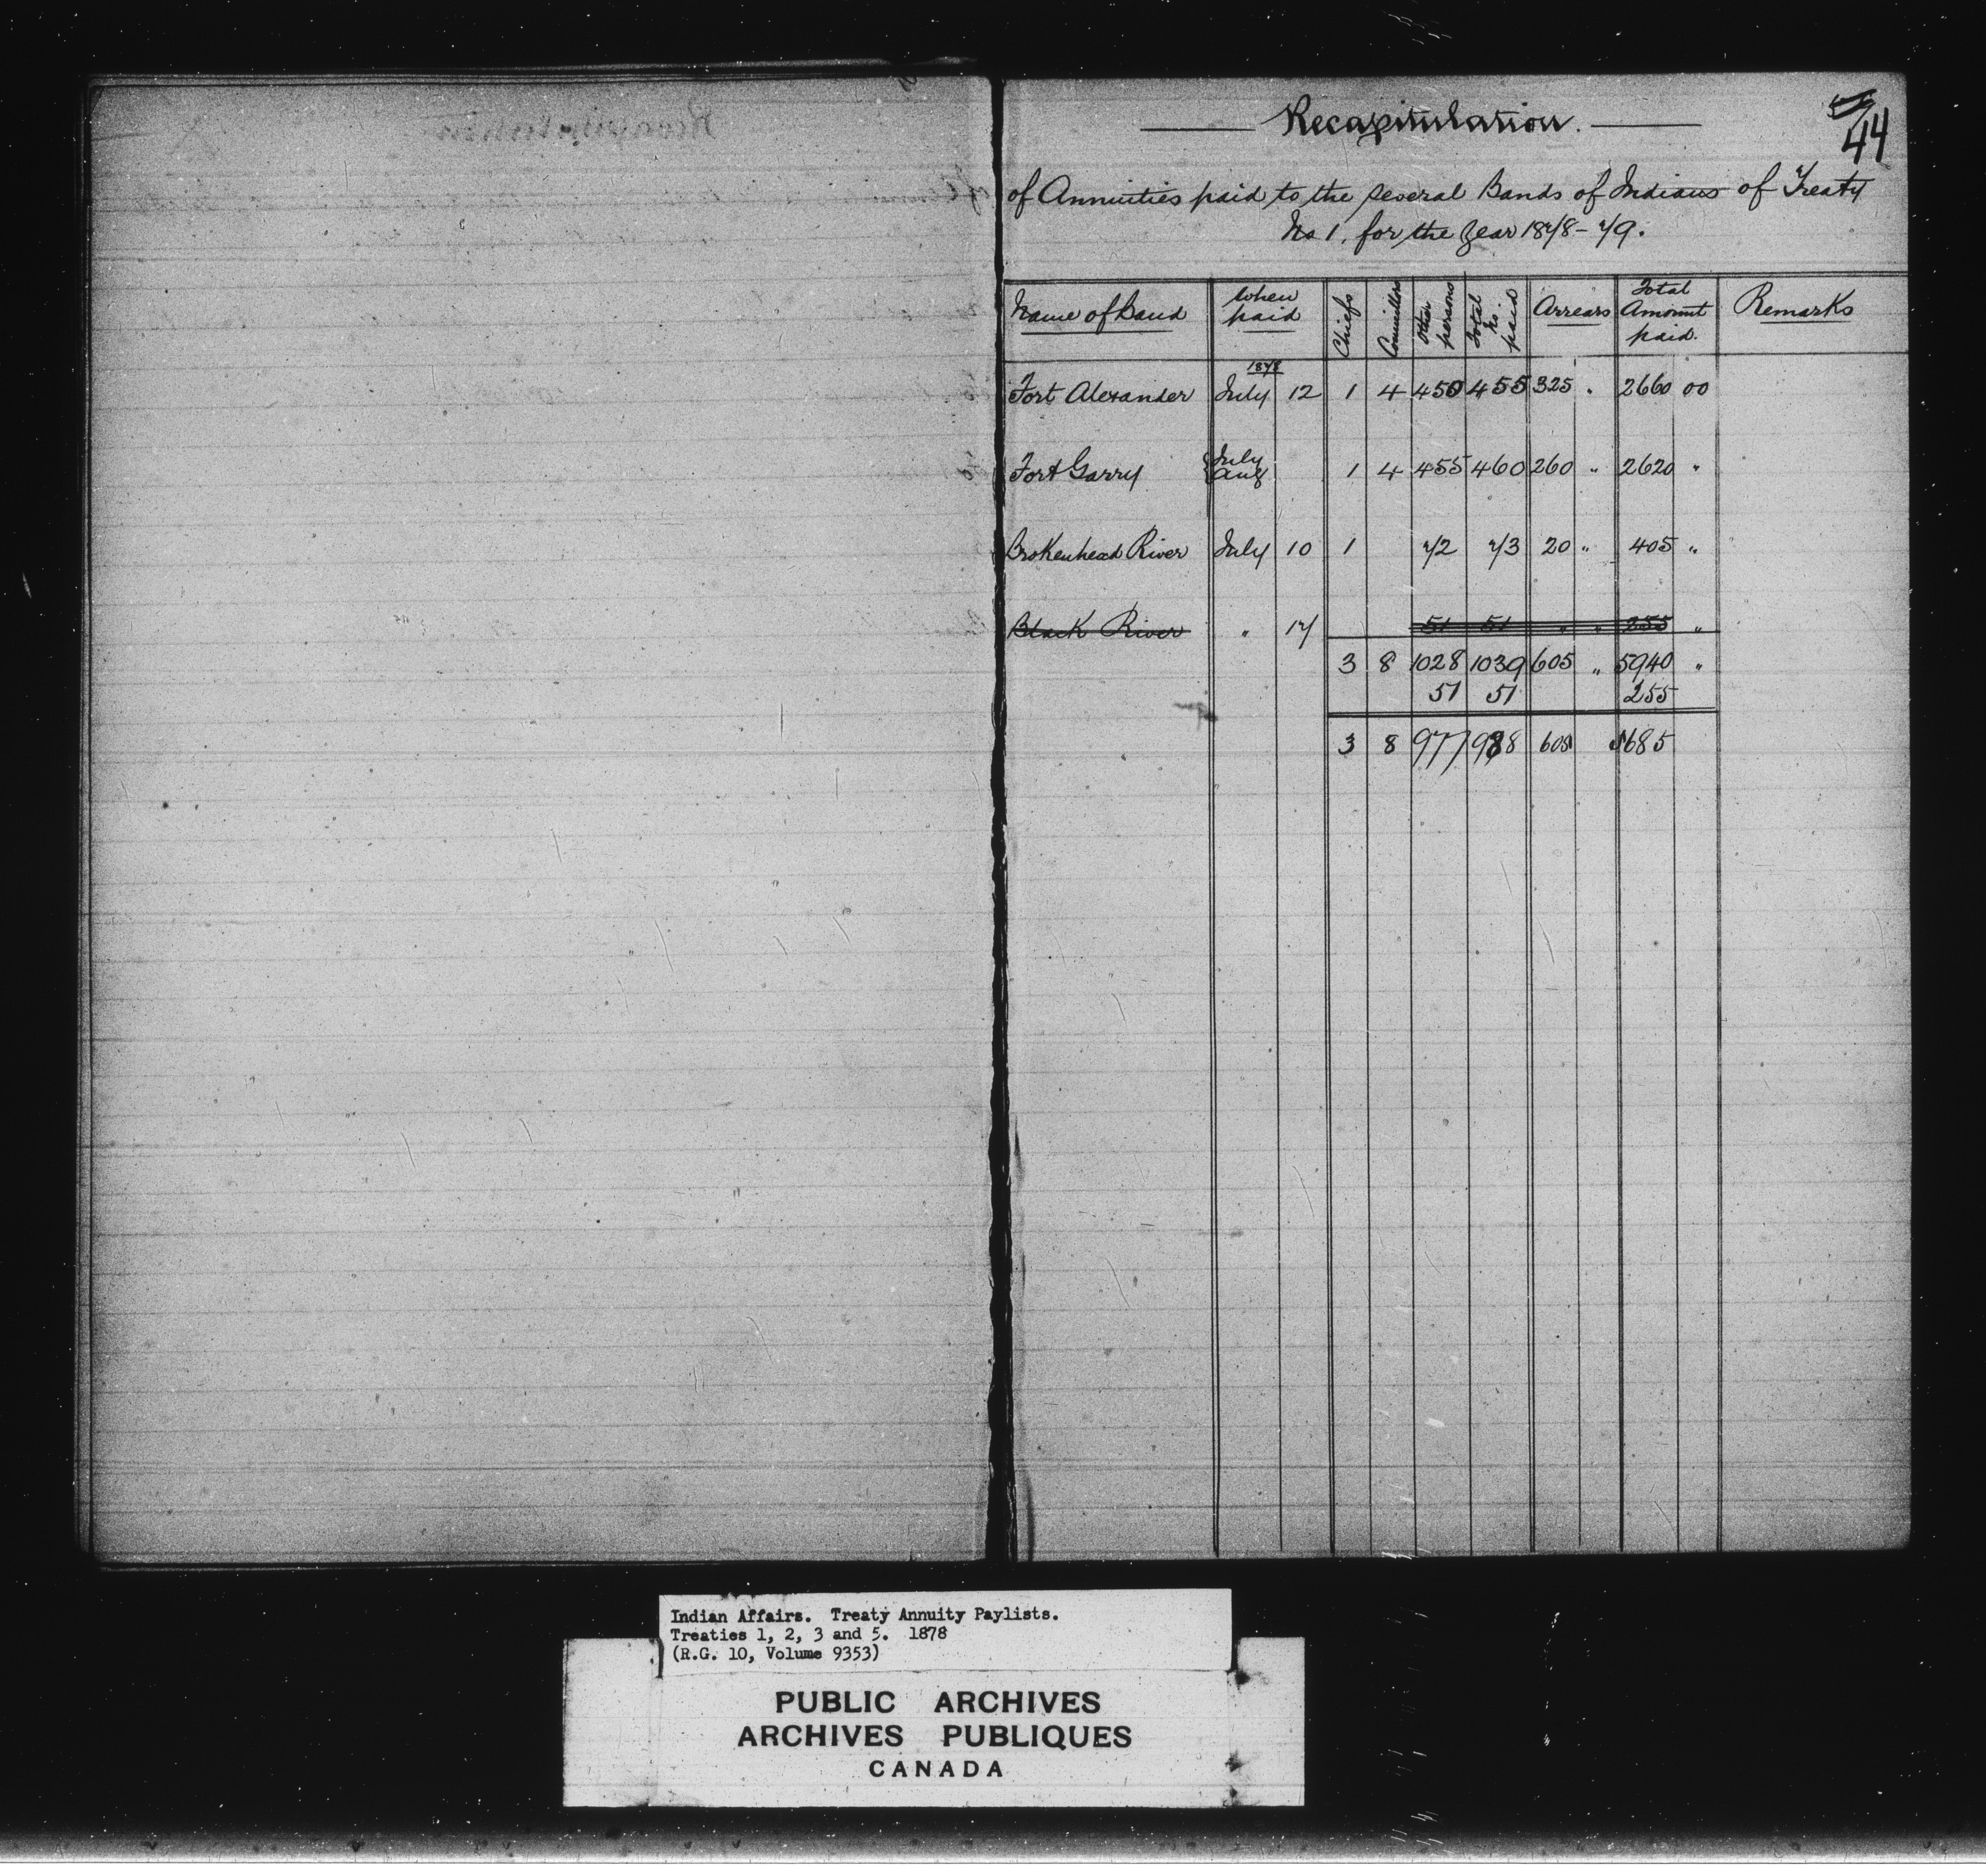 44
Recapitulation.
of Annuities paid to the several Bands of Indians of Treaty
No 1, for the Year 1878-79.
Name of Band When paid Chiefs Councillors Other persons Total No. paid Arrears Total Amount paid. Remarks
1878
Fort Alexander July 12 1 4 450 455 325 " 2660 00
Fort Garry { July Aug 1 4 455 460 260 " 2620 "
Brokenhead River July 10 1 72 73 20 " 405 "
Black River " 17 51 51 " " 255 "
3 8 1028 1039 605 " 5940 "
51 51 255
3 8 977 988 605 5685
Indian Affairs. Treaty Annuity Paylists.
Treaties 1, 2, 3 and 5. 1878
(R.G. 10, Volume 9353)
PUBLIC ARCHIVES
ARCHIVES PUBLIQUES
CANADA